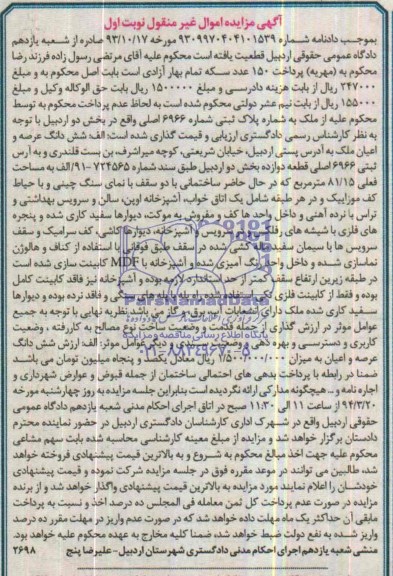 آگهی مزایده اموال غیر منقول نوبت اول
بموجب دادنامه شماره ۹۳۰۹۹۷۰۴۰۴۱۰۱۵۳۹ مورخه ۹۳/۱۰/۱۷ صادره از شعبه یازدهم
دادگاه عمومی حقوقی اردبیل قطعیت یافته است محکوم علیه آقای مرتضی رسول زاده فرزند رضا
محکوم به (مهریه) پرداخت ۱۵۰ عدد سکه تمام بهار آزادی است بابت اصل محکوم به و مبلغ
۲۴۷۰۰۰ ریال از بابت هزینه دادرسی و مبلغ ۱۵۰۰۰۰۰ ریال بابت حق الوکاله وکیل و مبلغ
۱۵۵۰۰۰ ریال از بابت نیم عشر دولتی محکوم شده است به لحاظ عدم پرداخت محکوم به توسط
محکوم علیه از ملک به شماره پلاک ثبتی شماره ۶۹۶۶ اصلی واقع در بخش دو اردبیل با توجه
به نظر کارشناس رسمی دادگستری ارزیابی و قیمت گذاری شده است: الف شش دانگ عرصه و
اعیان ملک به آدرس پستی اردبیل، خیابان شریعتی، کوچه میراشرف، بن بست قلندری و به آرس
ثبتی ۶۹۶۶ اصلی قطعه دوازده بخش دو اردبیل طبق سند شماره ۷۲۴۵۶۵-۹۱/الف به مساحت
فعلی ۸۱/۱۵ مترمربع که در حال حاضر ساختمانی با دو سقف با نمای سنگ چینی و با حیاط
کف موزاییک و در هر طبقه شامل یک اتاق خواب، آشپزخانه اوپن، سالن و سرویس بهداشتی و
تراس با نرده آهنی و داخل واحد ها کف و مفروش به موکت، دیوارها سفید کاری شده و پنجره
های فلزی با شیشه های سرویس و آشپزخانه، دیوارها کاشی، کف سرامیک و سقف
سرویس ها با سیمان سفید کشی شده در سقف طبق فوقانی با استفاده از کناف و هالوژن
نماسازی شده و داخل واحد رنگ آمیزی شده و آشپزخانه با MDF کابینت سازی شده است
در طبقه زیرین ارتفاع سقف کمتر از حد استاندارد لازمه بوده و آشپزخانه نیز فاقد کابینت کامل
بوده و فقط از کابینت فلزی استفاده شده راه پله سنگی و فاقد نرده بوده و دیوارها
سفید کاری شده ملک دارای انشعابات آب برق و گاز می باشد نظریه نهایی با توجه به جمیع
عوامل موثر در ارزش گذاری از جمله قدمت و وضعیت ساخت نوع مصالح به کاررفته، وضعیت
کاربری و دسترسی و بهره دهی و وضعیت سندی و دیگر عوامل موثر: الف: ارزش شش دانگ
عرصه و اعیان به میزان ۱/۵۰۰/۰۰۰/۰۰۰ ریال معادل یکصد و پنجاه میلیون تومان می باشد
ضمنا در رابطه با پرداخت بدهی های احتمالی ساختمان از جمله قبوض و عوارض شهرداری و
اجاره نامه و... هیچگونه مدارکی ارائه نگردیده است بنابراین جلسه مزایده به روز چهارشنبه مورخه
۹۴/۳/۲۰ از ساعت ۱۱ الی ۱۱:۳۰ صبح در اتاق اجرای احکام مدنی شعبه یازدهم دادگاه عمومی
حقوقی اردبیل واقع در شهرک اداری کارشناسان دادگستری اردبیل در حضور نماینده محترم
دادستان برگزار خواهد شد و مزایده از مبلغ معینه کارشناسی محاسبه شده بابت سهم مشاعی
محکوم علیه جهت اخذ مبالغ محکوم به شروع و به بالاترین قیمت پیشنهادی فروخته خواهد
شد، طالبین می توانند در موعد مقرره فوق در جلسه مزایده شرکت نموده و قیمت پیشنهادی
خودشان را اعلام نمایند مورد مزایده به بالاترین قیمت پیشنهادی واگذار خواهد شد و از برنده
مزایده در صورت عدم پرداخت کل ثمن معامله فی المجلس ده درصد اخذ و نسبت به پرداخت
مابقی آن حداکثر یک ماه مهلت داده خواهد شد که در صورت عدم واریز در مهلت مقرر ده درصد
واریز شده به نفع دولت ضبط خواهد شد، ضمنا کلیه مخارج به عهده محکوم علیه خواهد بود.
منشی شعبه یازدهم اجرای احکام مدنی دادگستری شهرستان اردبیل - علیرضا پنج ۲۶۹۸
ParsNamadData
پایگاه اطلاع رسانی مناقصه و مزایده
۰۲۱-۸۸۳۴۹۶۷۰-۵